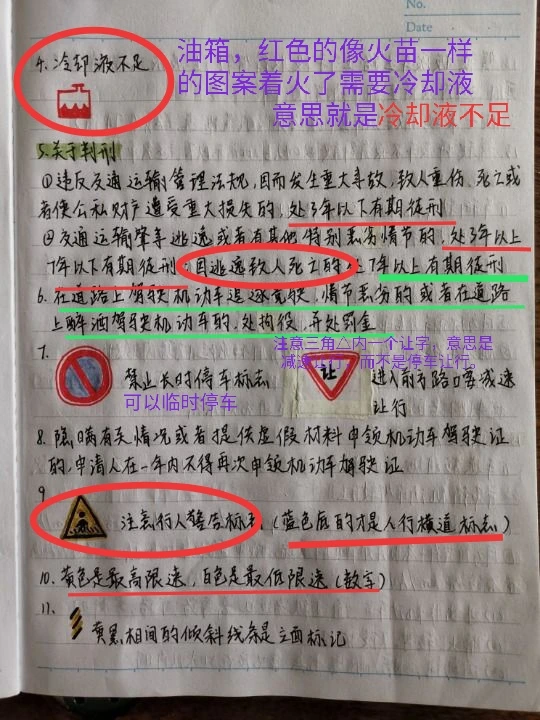 No.
Date
4. 冷却液不足
油箱，红色的像火苗一样
的图案着火了需要冷却液
意思就是冷却液不足
5.关于判刑
①违反交通运输管理法规，因而发生重大事故，致人重伤、死亡或
者使公私财产遭受重大损失的，处3年以下有期徒刑
②交通运输肇事逃逸或者有其他特别恶劣情节的，处3年以上
7年以下有期徒刑，因逃逸致人死亡的处7年以上有期徒刑
6. 在道路上驾驶机动车追逐竞驶，情节恶劣的或者在道路
上醉酒驾驶机动车的，处拘役，并处罚金
7.
注意三角△内一个让字，意思是
减速让行，而不是停车让行。
禁止长时停车标志
可以临时停车
让
进入前方路口要减速
让行
8. 隐瞒有关情况或者提供虚假材料申领机动车驾驶证
的，申请人在一年内不得再次申领机动车驾驶证
9
注意行人警告标志（蓝色底的才是人行横道标志）
10. 黄色是最高限速，白色是最低限速（数字）
11.
黄黑相间的倾斜线条是立面标记